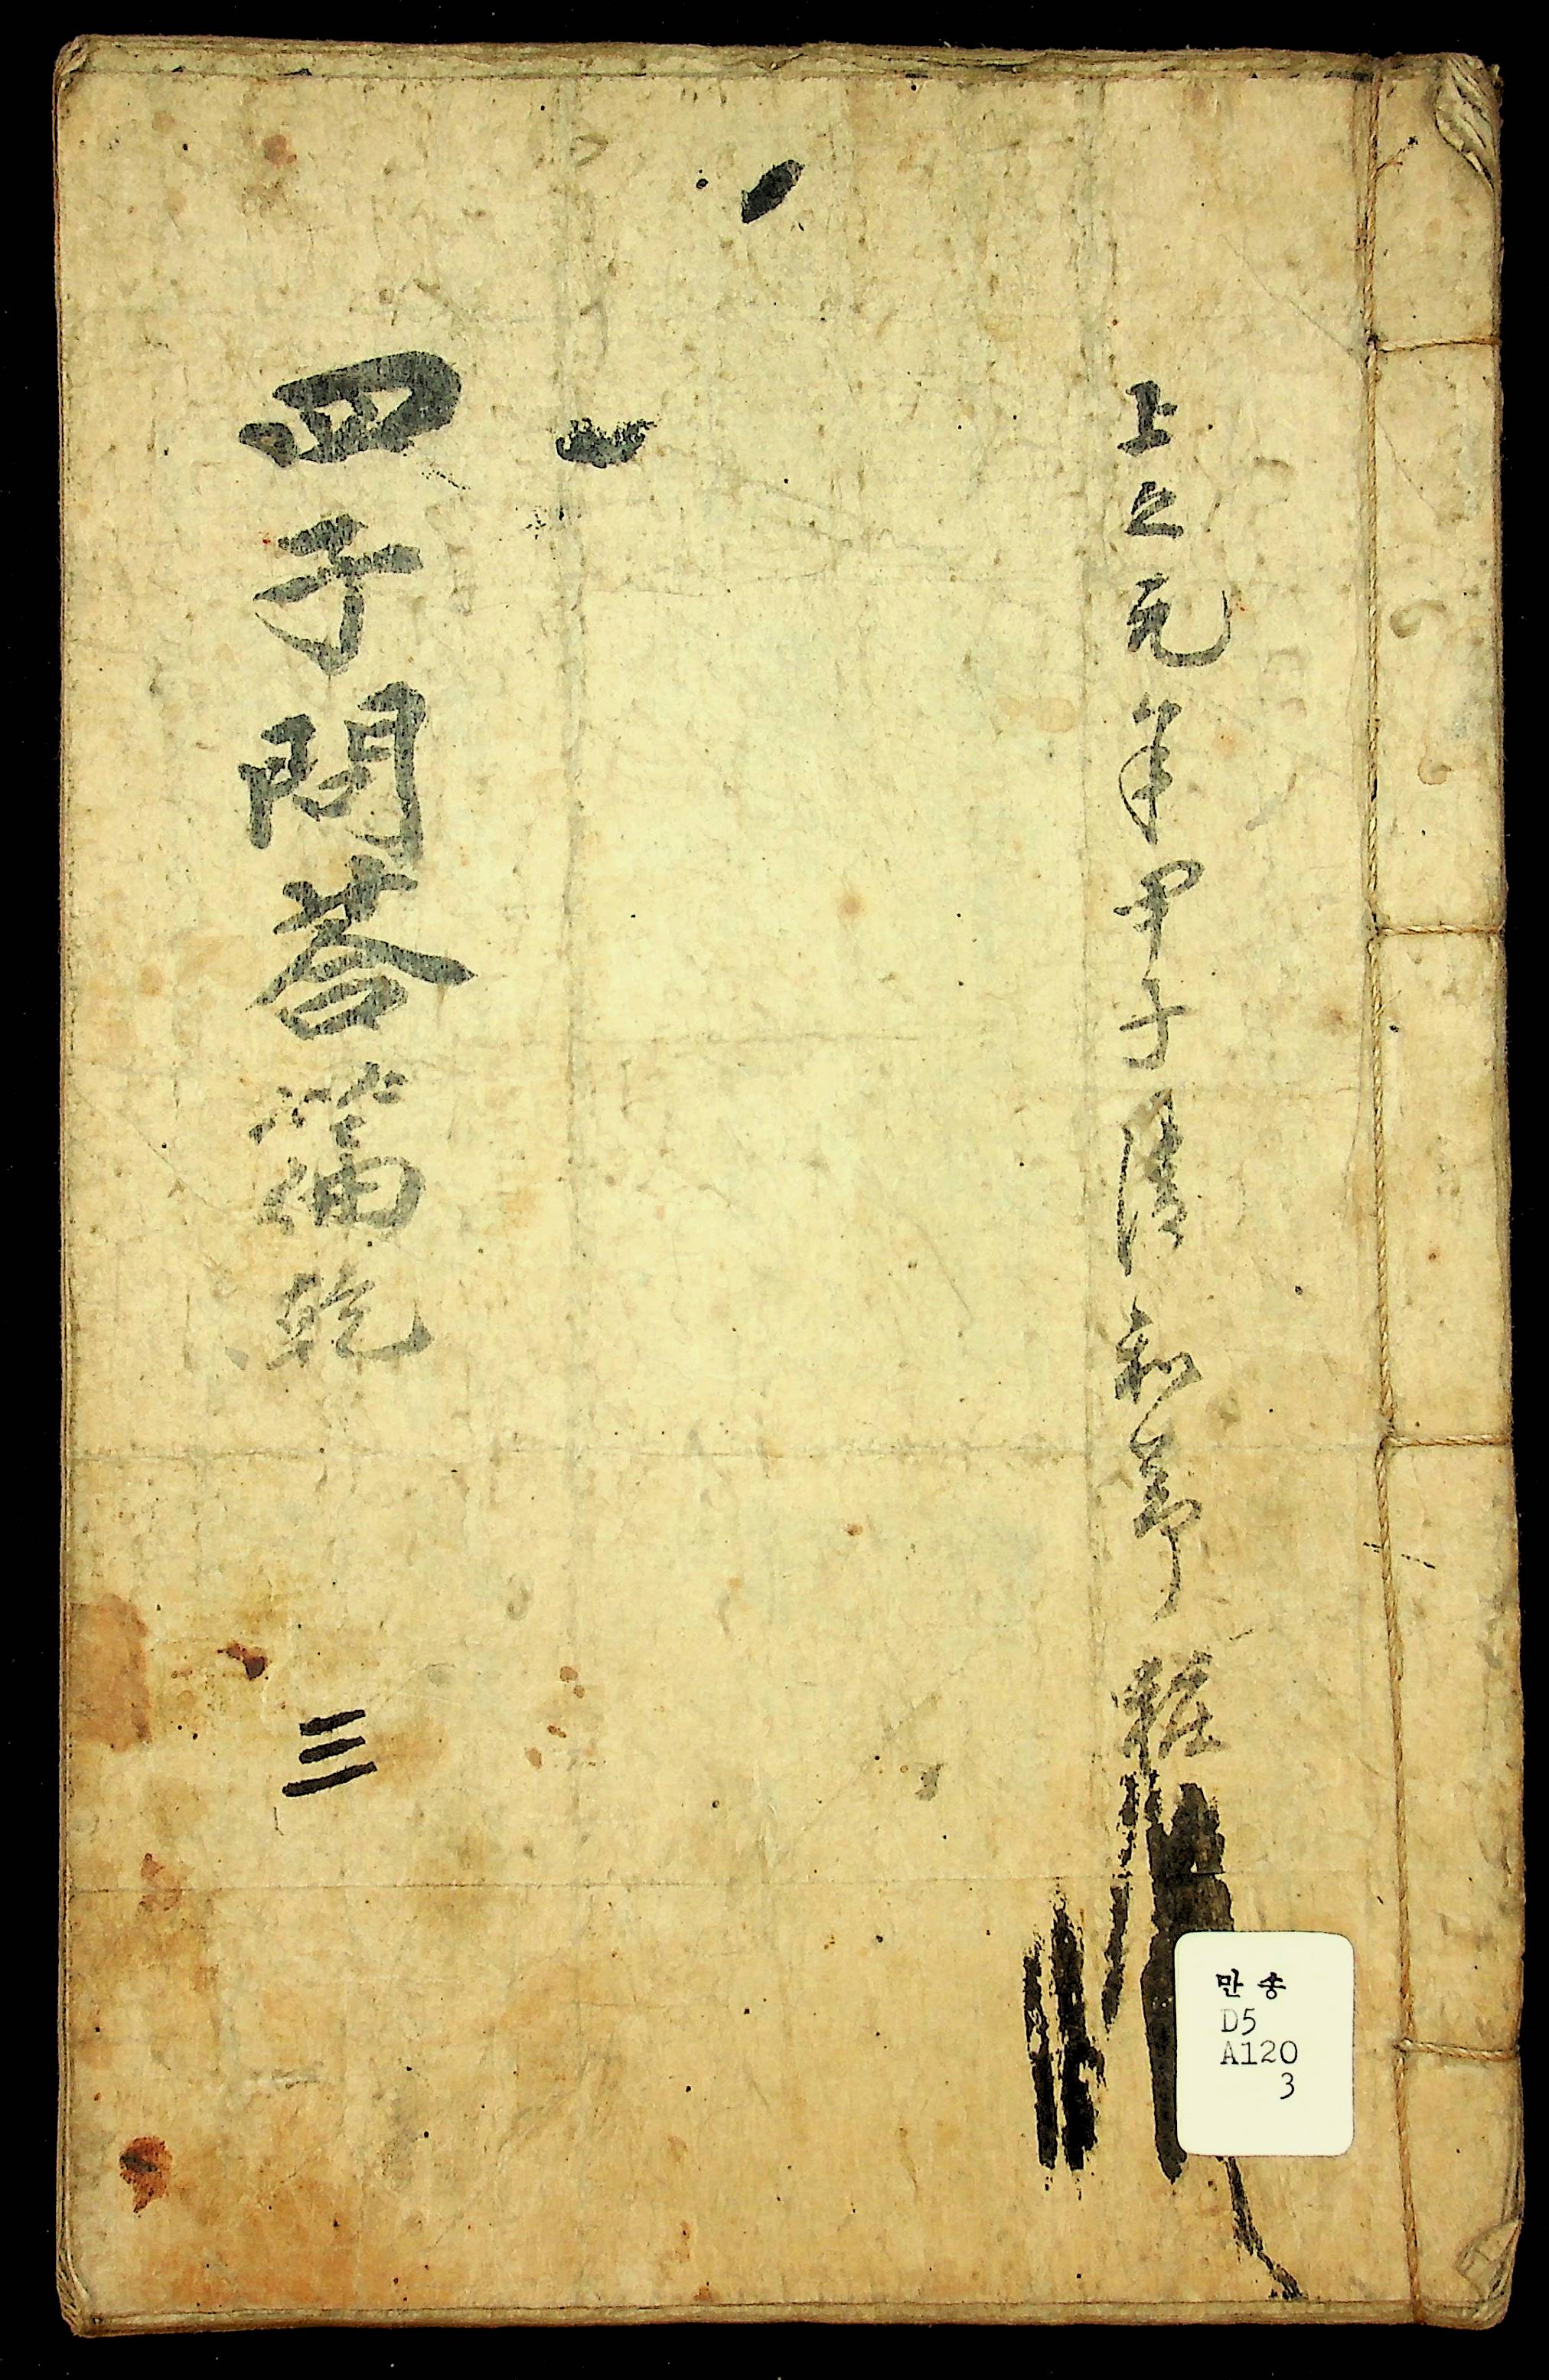 上之元年甲子清和節粧
四子問荅篇乾
三
만송
D5
A120
3